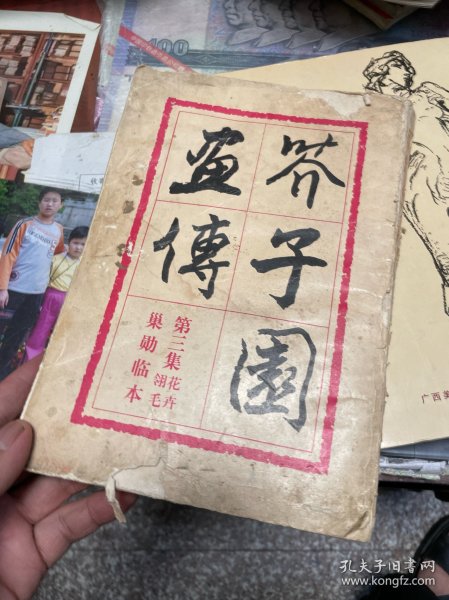 芥子園
画傳
第三集花卉翎毛
巢勋临本
广西美
100
孔夫子旧书网
www.kongfz.com